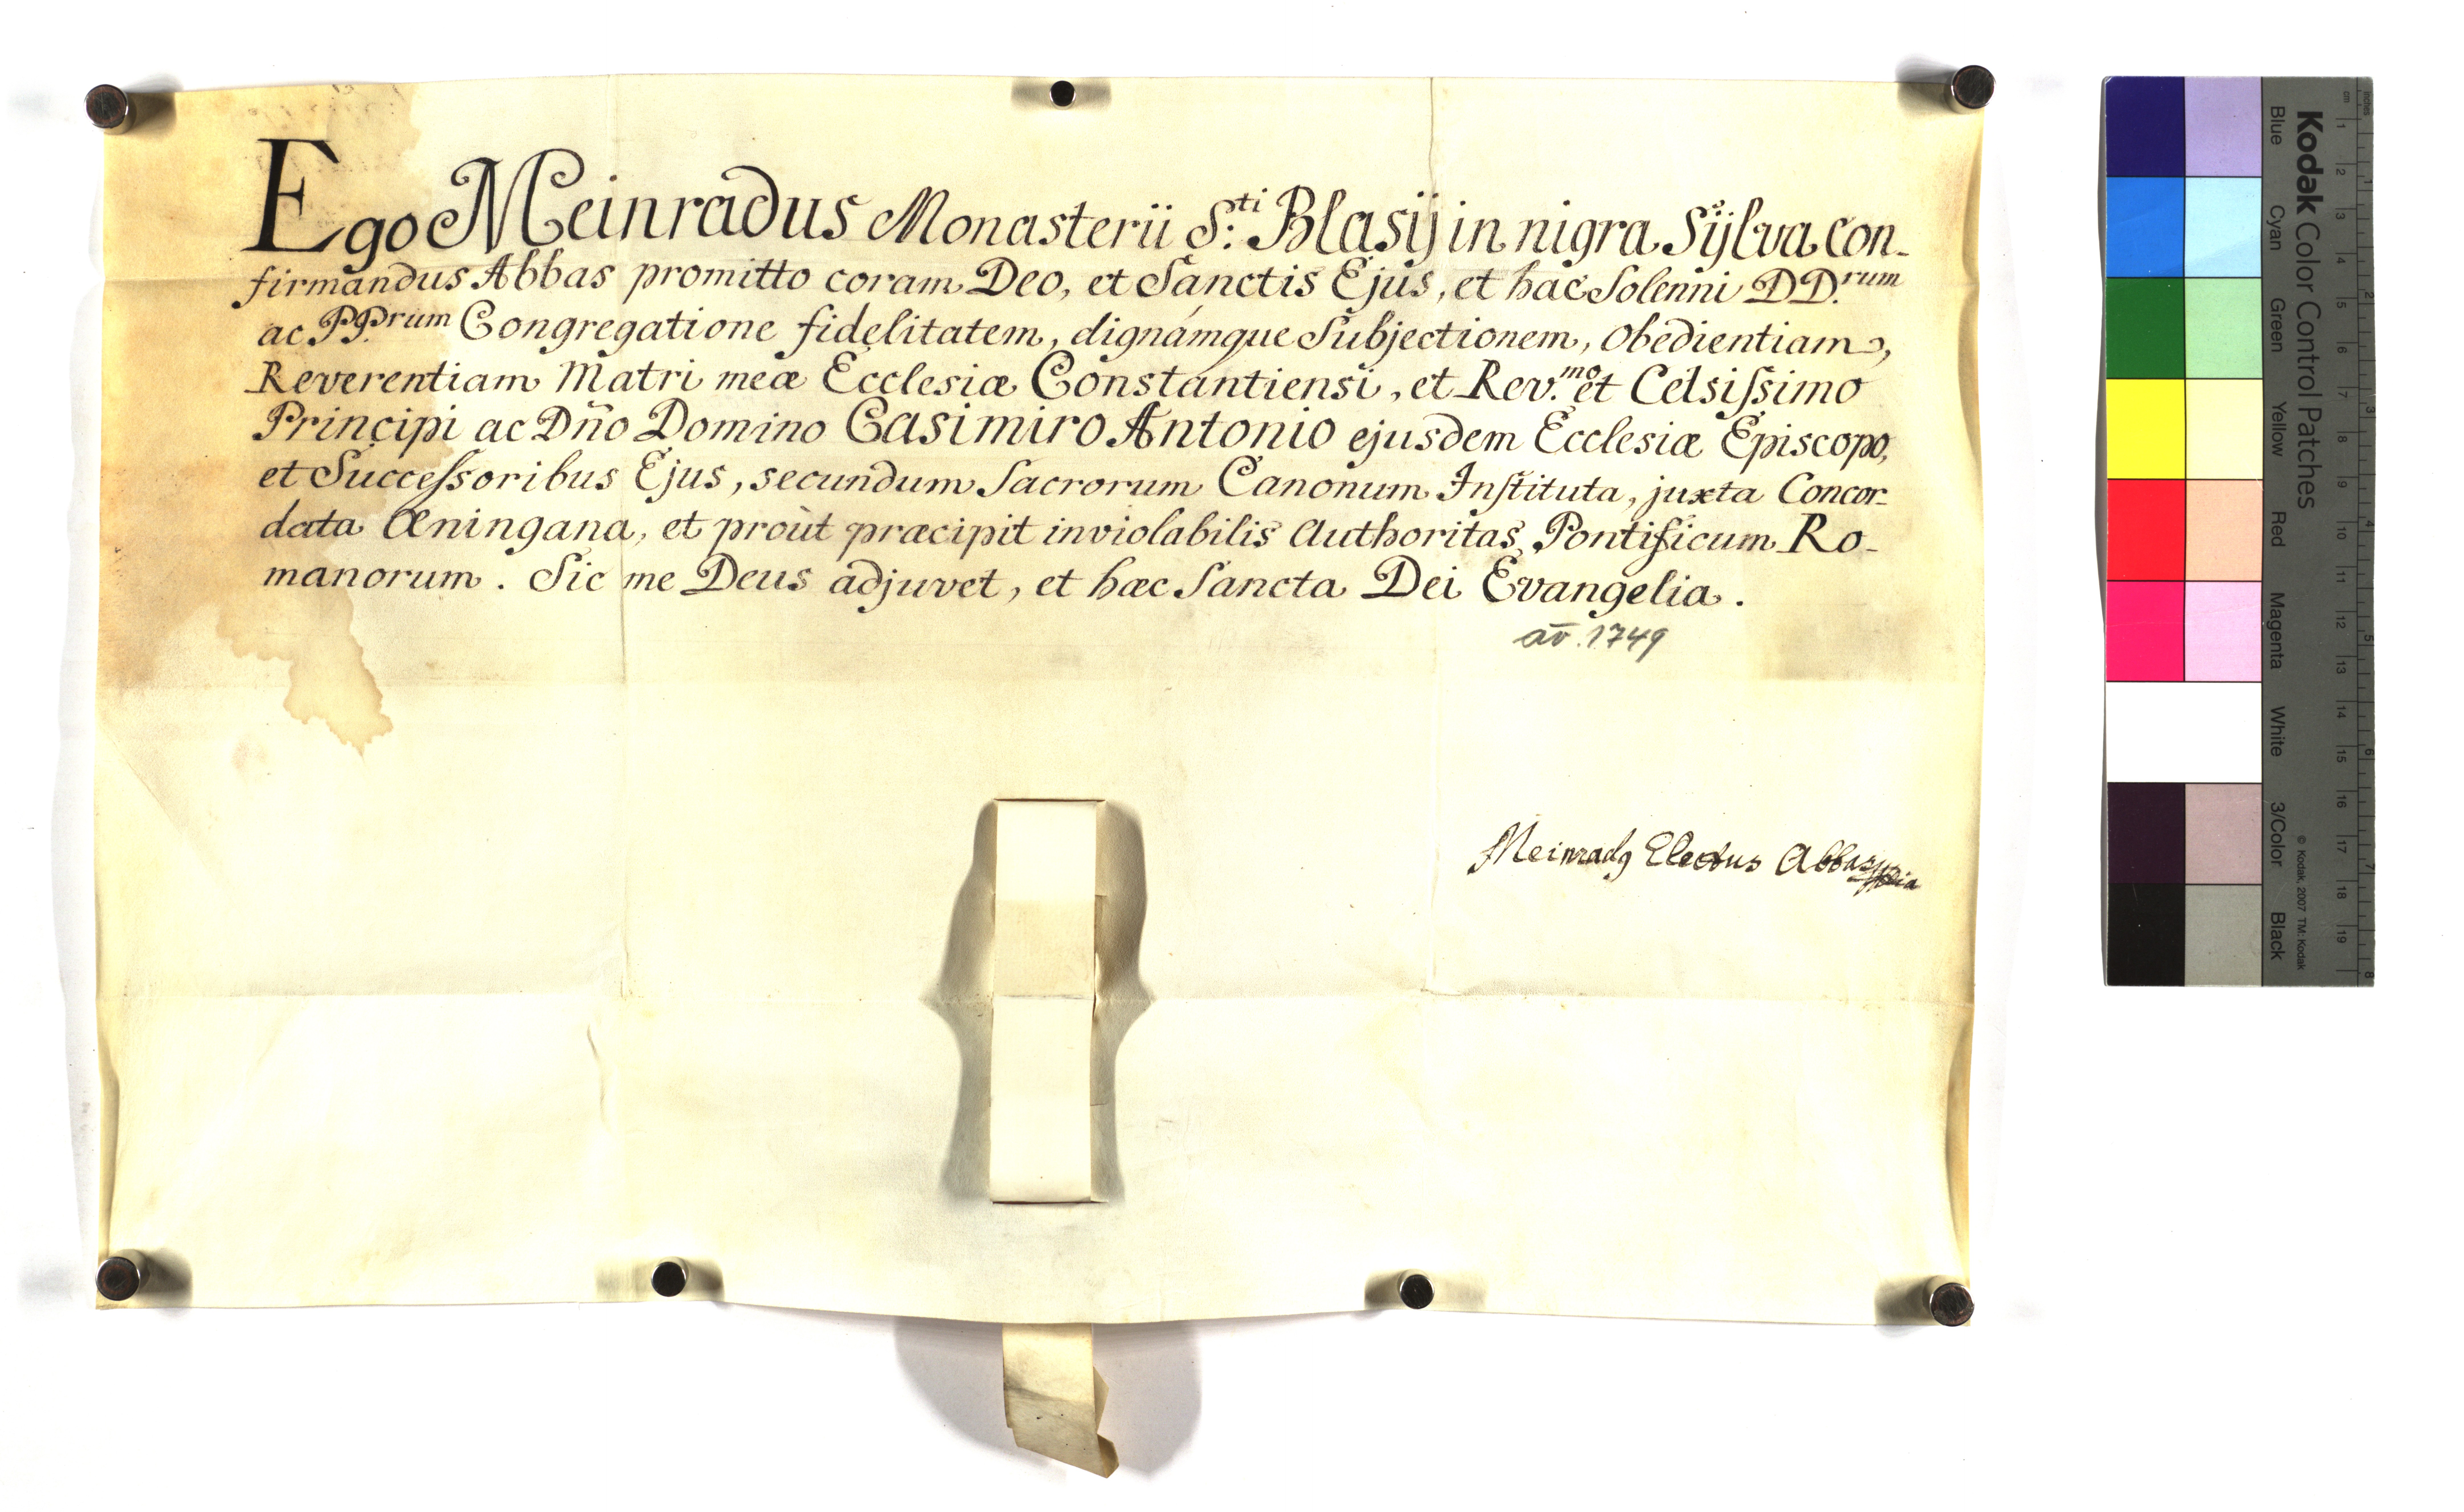 Ego Meinradus Monasterii S:ti Blasij in nigra Sÿlva con-
firmandus Abbas promitto coram Deo, et Sanctis Ejus, et hac Solenni DD.rum
ac PP.rum Congregatione fidelitatem, dignámque Subjectionem, Obedientiam,
Reverentiam Matri meæ Ecclesiæ Constantiensi, et Rev.mo et Celsiſsimo
Principi ac Dño Domino Casimiro Antonio ejusdem Ecclesiæ Episcopo,
et Succeſsoribus Ejus, secundum Sacrorum Canonum Inſtituta, juxta Concor-
data Æningana, et proùt præcipit inviolabilis Authoritas Pontificum Ro-
manorum. Sic me Deus adjuvet, et hæc Sancta Dei Evangelia.
aō. 1749
Meinradꝰ Electus Abbas
Kodak Color Control Patches
Blue Cyan Green Yellow Red Magenta White 3/Color Black
© Kodak, 2007 TM: Kodak
cm 1 2 3 4 5 6 7 8 9 10 11 12 13 14 15 16 17 18 19
inches 1 2 3 4 5 6 7 8